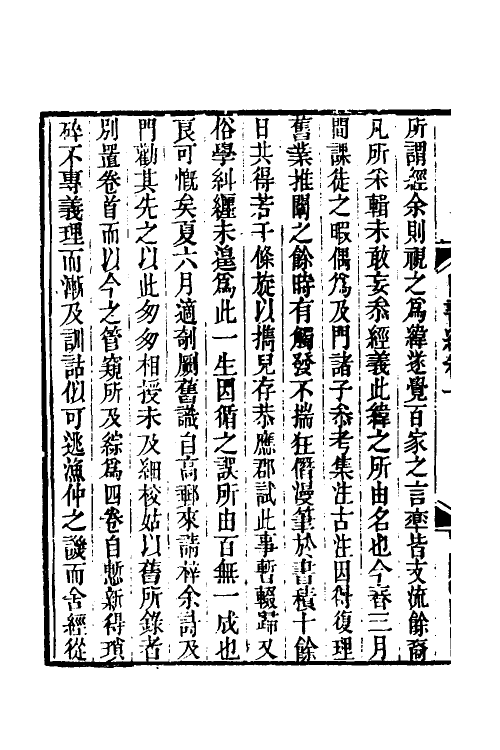 所謂經余則視之爲緯遂覺百家之言率皆支流餘裔
凡所采輯未敢妄叅經義此緯之所由名也今春三月
問課徒之暇偶爲及門諸子叅考集注古注因得復理
舊業推闡之餘時有觸發不揣狂僭漫筆於書積十餘
日共得若干條旋以擕兒存恭應郡試此事暫輟歸又
俗學糾纒未遑爲此一生因循之誤所由百無一成也
良可慨矣夏六月適剞劂舊識自高郵來請梓余詩及
門勸其先之以此匆匆相授未及細校姑以舊所錄者
別置卷首而以今之管窺所及綜爲四卷自慙新得瑣
碎不專義理而漸及訓詁似可逃漁仲之譏而舍經從